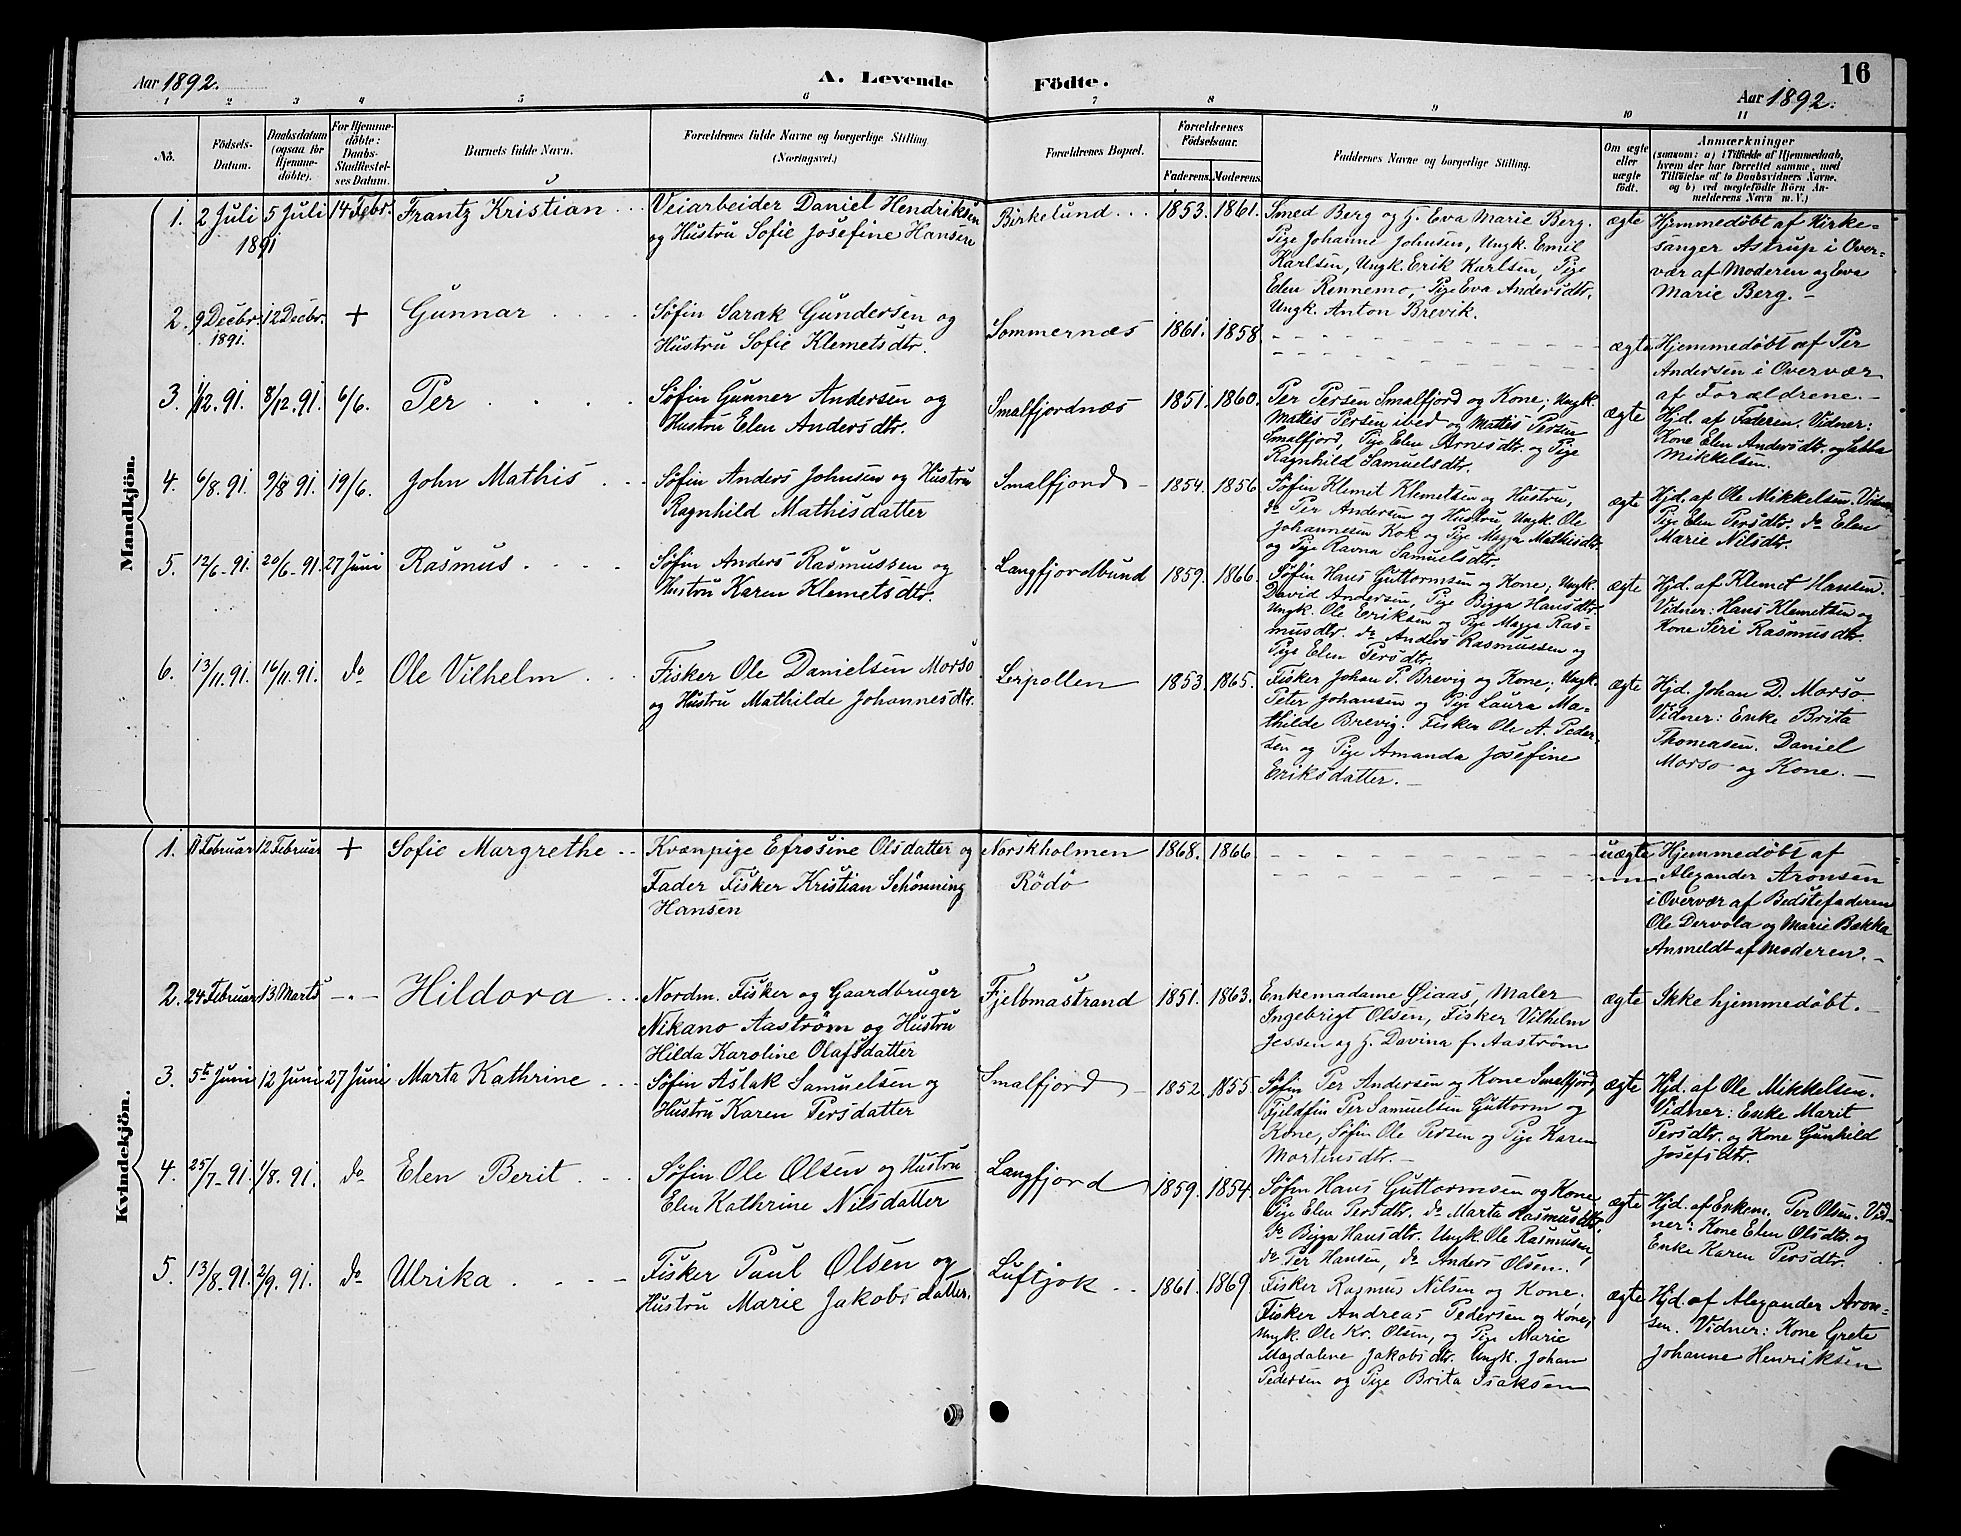 Aar 1892.
A. Levende
Födte.
16
Aar 1892.
1 2 3 4 5 6 7 8 9 10 11
No.
Födsels-
Datum.
Daabsdatum
(ogsaa for
Hjemme-
döbte).
For Hjemme-
döbte:
Daabs-
Stadfæstel-
ses Datum.
Barnets fulde Navn.
Forældrenes fulde Navne og borgerlige Stilling
(Næringsvei.)
Forældrenes Bopæl.
Forældrenes
Födselsaar.
Faderens. Moderens.
Faddernes Navne og borgerlige Stilling.
Om ægte
eller
uægte
födt.
Anmærkninger
(saasom: a) i Tilfælde af Hjemmedaab,
hvem der har forrettet samme, med
Tilföielse af to Daabsvidners Navne,
og b) ved uægtefödte Börn An-
melderens Navn m. V.)
Mandkjön.
1. 2 Juli 1891
5 Juli
14 Febr.
Frantz Kristian
Veiarbeider Daniel Hendriksen
og Hustru Sofie Josefine Hansen
Birkelund
1853. 1861.
Smed Berg og H. Eva Marie Berg.
Pige Johanne Johnsen, Ungk. Emil
Karlsen, Ungk. Erik Karlsen, Pige
Elen Rennemo, Pige Eva Andersdtr.
Ungk. Anton Brevik.
ægte
Hjemmedøbt af Kirke-
sanger Astrup i Over-
vær af Moderen og Eva
Marie Berg. —
2. 9 Decbr. 1891.
12 Decbr.
+
Gunnar
Søfin Sarak Gundersen og
Hustru Sofie Klemetsdtr.
Sommernæs
1861. 1858.
ægte
Hjemmedøbt af Per
Andersen i Overvær
af Forældrene. —
3. 1/12. 91.
8/12. 91.
6/6.
Per
Søfin Gunner Andersen og
Hustru Elen Andersdtr.
Smalfjordnæs
1851. 1860.
Per Persen Smalfjord og Kone; Ungk.
Mattis Persen ibed og Mattis Persen
Smalfjord, Pige Elen Arnesdtr. og Pige
Ragnhild Samuelsdtr.
ægte
Hjd. af Faderen. Vidner:
Kone Elen Andersdtr. og
Mikkelsen.
4. 6/8. 91.
9/8. 91.
19/6.
John Mathis
Søfin Anders Johnsen og Hustru
Ragnhild Mathisdatter
Smalfjord —
1854. 1856
Søfin Klemit Klemetsen og Hustru,
do Per Andersen og Hustru, Ungk. Ole
Johannesen Kok og Pige Magga Mathisdtr.
og Pige Ravna Samuelsdtr.
ægte
Hjd. af Ole Mikkelsen. Vidner
Pige Elen Persdtr. do Elen
Marie Nilsdtr.
5. 12/6. 91.
20/6. 91.
27 Juni
Rasmus
Søfin Anders Rasmussen og
Hustru Karen Klemetsdtr.
Langfjordbund
1859. 1866.
Søfin Hans Guttormsen og Kone; Ungk.
David Andersen, Pige Bigga Hansdtr.
Ungk. Ole Eriksen og Pige Magga Ras-
musdtr. do Anders Rasmussen og
Pige Elen Persdtr.
ægte
Hjd. af Klemet Hansen.
Vidner: Hans Klemetsen og
Kone Siri Rasmusdtr.
6. 13/11. 91.
16/11. 91.
do
Ole Vilhelm
Fisker Ole Danielsen Morso
og Hustru Mathilde Johannesdtr.
Lerpollen
1853. 1865.
Fisker Johan P. Brevig og Kone; Ungk.
Peter Johansen og Pige Laura Ma-
thilde Brevig. Fisker Ole A. Peder-
sen og Pige Amanda Josefine
Eriksdatter. —
ægte
Hjd. Johan D. Morso.
Vidner: Enke Brita
Thomasen. Daniel
Morso og Kone. —
Kvindekjön.
1. 11 Februar
12 Februar
+
Sofie Margrethe
Kvænpige Efrosine Olsdatter og
Fader Fisker Kristian Schönning
Hansen
Norskholmen
Rödö
1868. 1866
uægte
Hjemmedøbt af
Alexander Aronsen
i Overvær af Bedstefaderen
Ole Dervola og Marie Bakka
Anmeldt af Moderen. —
2. 24 Februar
13 Marts
— . —
Hildora
Nordm. Fisker og Gaardbruger
Nikano Aaström og Hustru
Hilda Karoline Olafsdatter
Fjelbmastrand
1851. 1863.
Enkemadame Giaas, Maler
Ingebrigt Olsen, Fisker Vilhelm
Jessen og H. Davina f. Aaström
ægte
Ikke hjemmedøbt. —
3. 5te Juni
12 Juni
27 Juni
Marta Kathrine
Søfin Aslak Samuelsen og
Hustru Karen Persdatter
Smalfjord —
1852 1855.
Søfin Per Andersen og Kone Smalfjord,
Fjeldfin Per Samuelsen Guttorm og
Kone, Søfin Ole Persen og Pige Karen
Mortensdtr. —
ægte
Hjd. af Ole Mikkelsen.
Vidner: Enke Marit
Persdtr. og Kone Gunhild
Josefsdtr.
4. 25/7. 91.
1/8. 91.
do
Elen Berit
Søfin Ole Olsen og Hustru
Elen Kathrine Nilsdatter
Langfjord
1859. 1854.
Søfin Hans Guttormsen og Kone
Pige Elen Persdtr. do Marta Rasmusdtr.
do Bigga Hansdtr. Ungk. Ole Rasmusen,
do Per Hansen, do Anders Olsen.
ægte
Hjd. af Enkem. Per Olsen. Vid-
ner: Kone Elen Olsdtr. og
Enke Karen Persdtr.
5. 13/8. 91.
2/9. 91.
do
Ulrika
Fisker Paul Olsen og
Hustru Marie Jakobsdatter.
Luftjok
1861. 1869.
Fisker Rasmus Nilsen og Kone,
Fisker Andreas Pedersen og Kone,
Ungk. Ole Kr. Olsen, og Pige Marie
Magdalene Jakobsdtr. Ungk. Johan
Pedersen og Pige Brita Isaksen
ægte
Hjd. af Alexander Aron-
sen. Vidner: Kone Grete
Johanne Henriksen